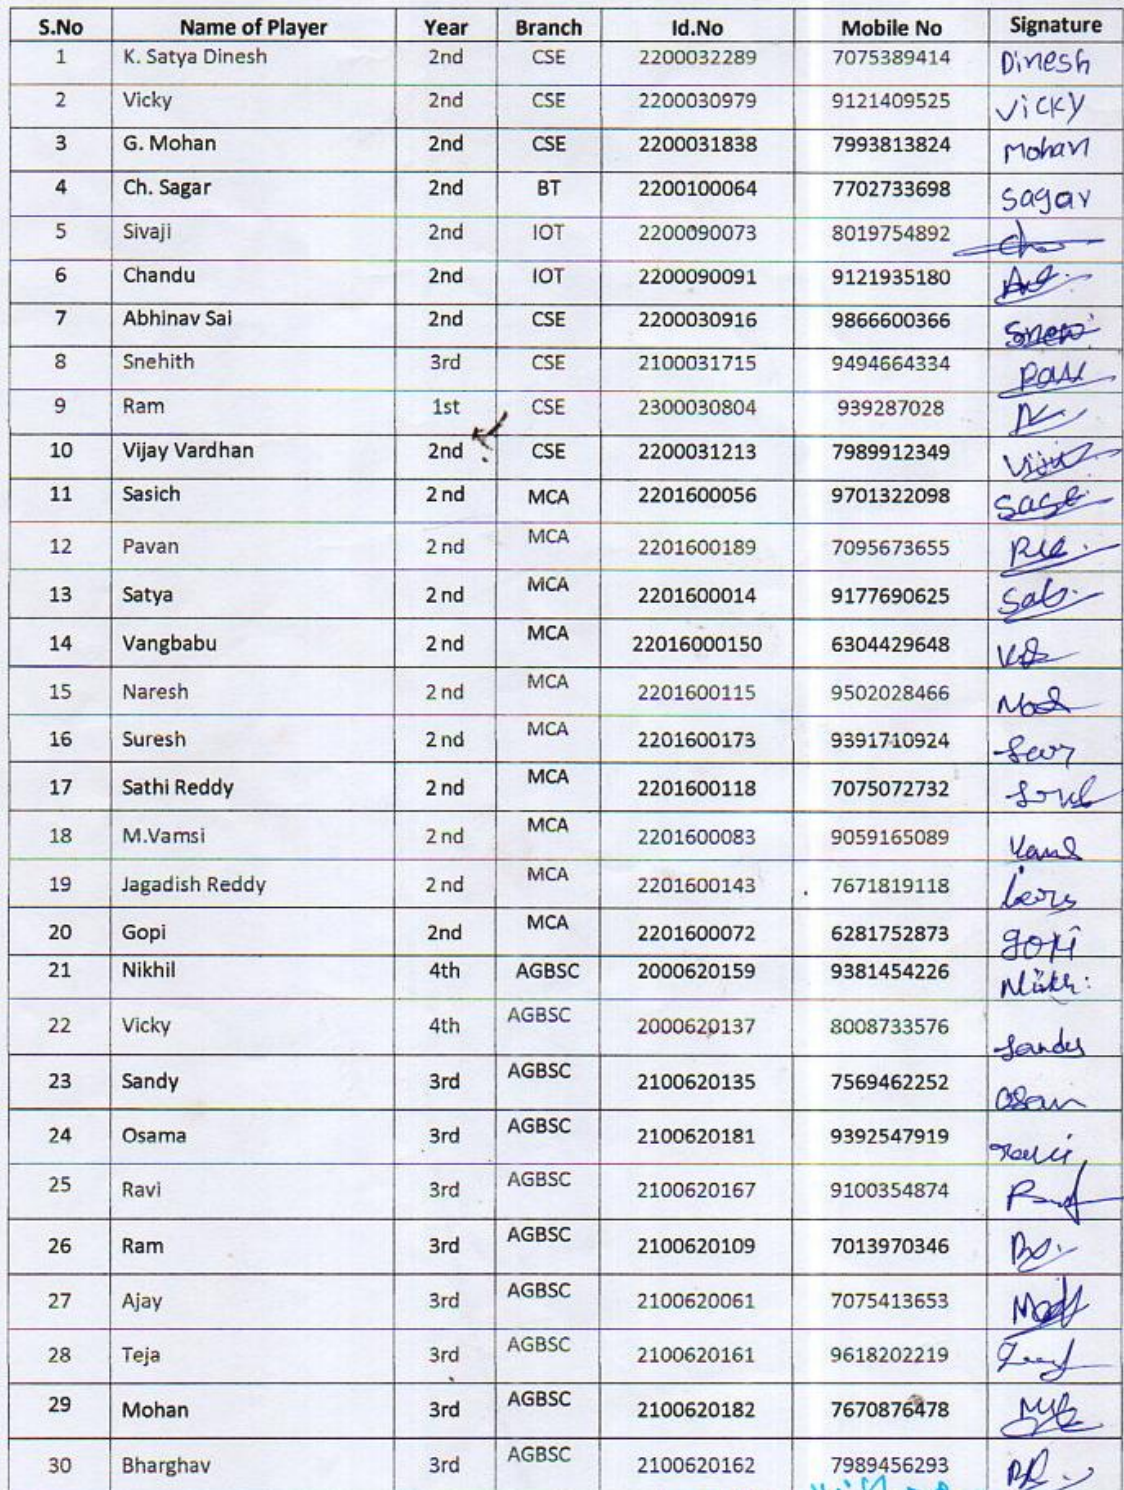 S.No Name of Player Year Branch Id.No Mobile No Signature
1 K. Satya Dinesh 2nd CSE 2200032289 7075389414 Dinesh
2 Vicky 2nd CSE 2200030979 9121409525 Vicky
3 G. Mohan 2nd CSE 2200031838 7993813824 Mohan
4 Ch. Sagar 2nd BT 2200100064 7702733698 Sagar
5 Sivaji 2nd IOT 2200090073 8019754892
6 Chandu 2nd IOT 2200090091 9121935180
7 Abhinav Sai 2nd CSE 2200030916 9866600366
8 Snehith 3rd CSE 2100031715 9494664334
9 Ram 1st CSE 2300030804 939287028
10 Vijay Vardhan 2nd CSE 2200031213 7989912349
11 Sasich 2 nd MCA 2201600056 9701322098
12 Pavan 2 nd MCA 2201600189 7095673655
13 Satya 2 nd MCA 2201600014 9177690625
14 Vangbabu 2 nd MCA 22016000150 6304429648
15 Naresh 2 nd MCA 2201600115 9502028466
16 Suresh 2 nd MCA 2201600173 9391710924
17 Sathi Reddy 2 nd MCA 2201600118 7075072732
18 M.Vamsi 2 nd MCA 2201600083 9059165089
19 Jagadish Reddy 2 nd MCA 2201600143 7671819118
20 Gopi 2nd MCA 2201600072 6281752873 gopi
21 Nikhil 4th AGBSC 2000620159 9381454226
22 Vicky 4th AGBSC 2000620137 8008733576
23 Sandy 3rd AGBSC 2100620135 7569462252
24 Osama 3rd AGBSC 2100620181 9392547919
25 Ravi 3rd AGBSC 2100620167 9100354874
26 Ram 3rd AGBSC 2100620109 7013970346
27 Ajay 3rd AGBSC 2100620061 7075413653
28 Teja 3rd AGBSC 2100620161 9618202219
29 Mohan 3rd AGBSC 2100620182 7670876478
30 Bharghav 3rd AGBSC 2100620162 7989456293